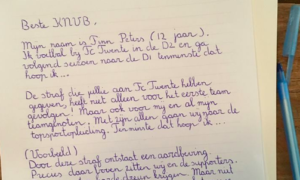 Beste KNVB,
Mijn naam is Tijn Peters (12 jaar).
Ik voetbal bij Fc Twente in de D2 en ga
volgend seizoen naar de D1 tenminste dat
hoop ik ...
De straf die jullie aan Fc Twente hebben
gegeven, heeft niet alleen voor het eerste team
gevolgen! Maar ook voor mij en al mijn
teamgenoten. Met zijn allen gaan wij naar de
topsportopleiding. Tenminste dat hoop ik ...
(Voorbeeld)
Door deze straf ontstaat een aardbeving
Precies daar boven zitten wij en de supporters.
krijgen. Maar nul